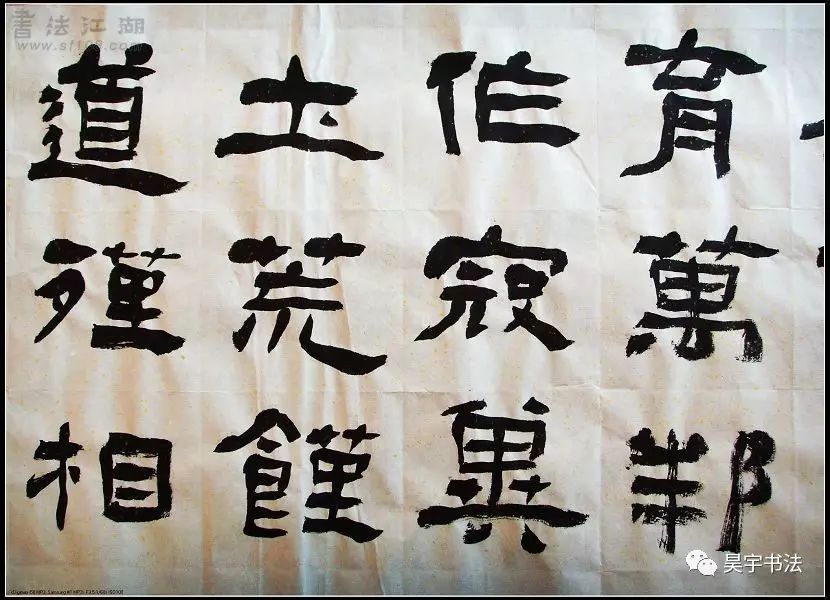 育萬邦
作寇冀
土荒饉
道殣相
書法江湖
www.sf108.com
昊宇书法